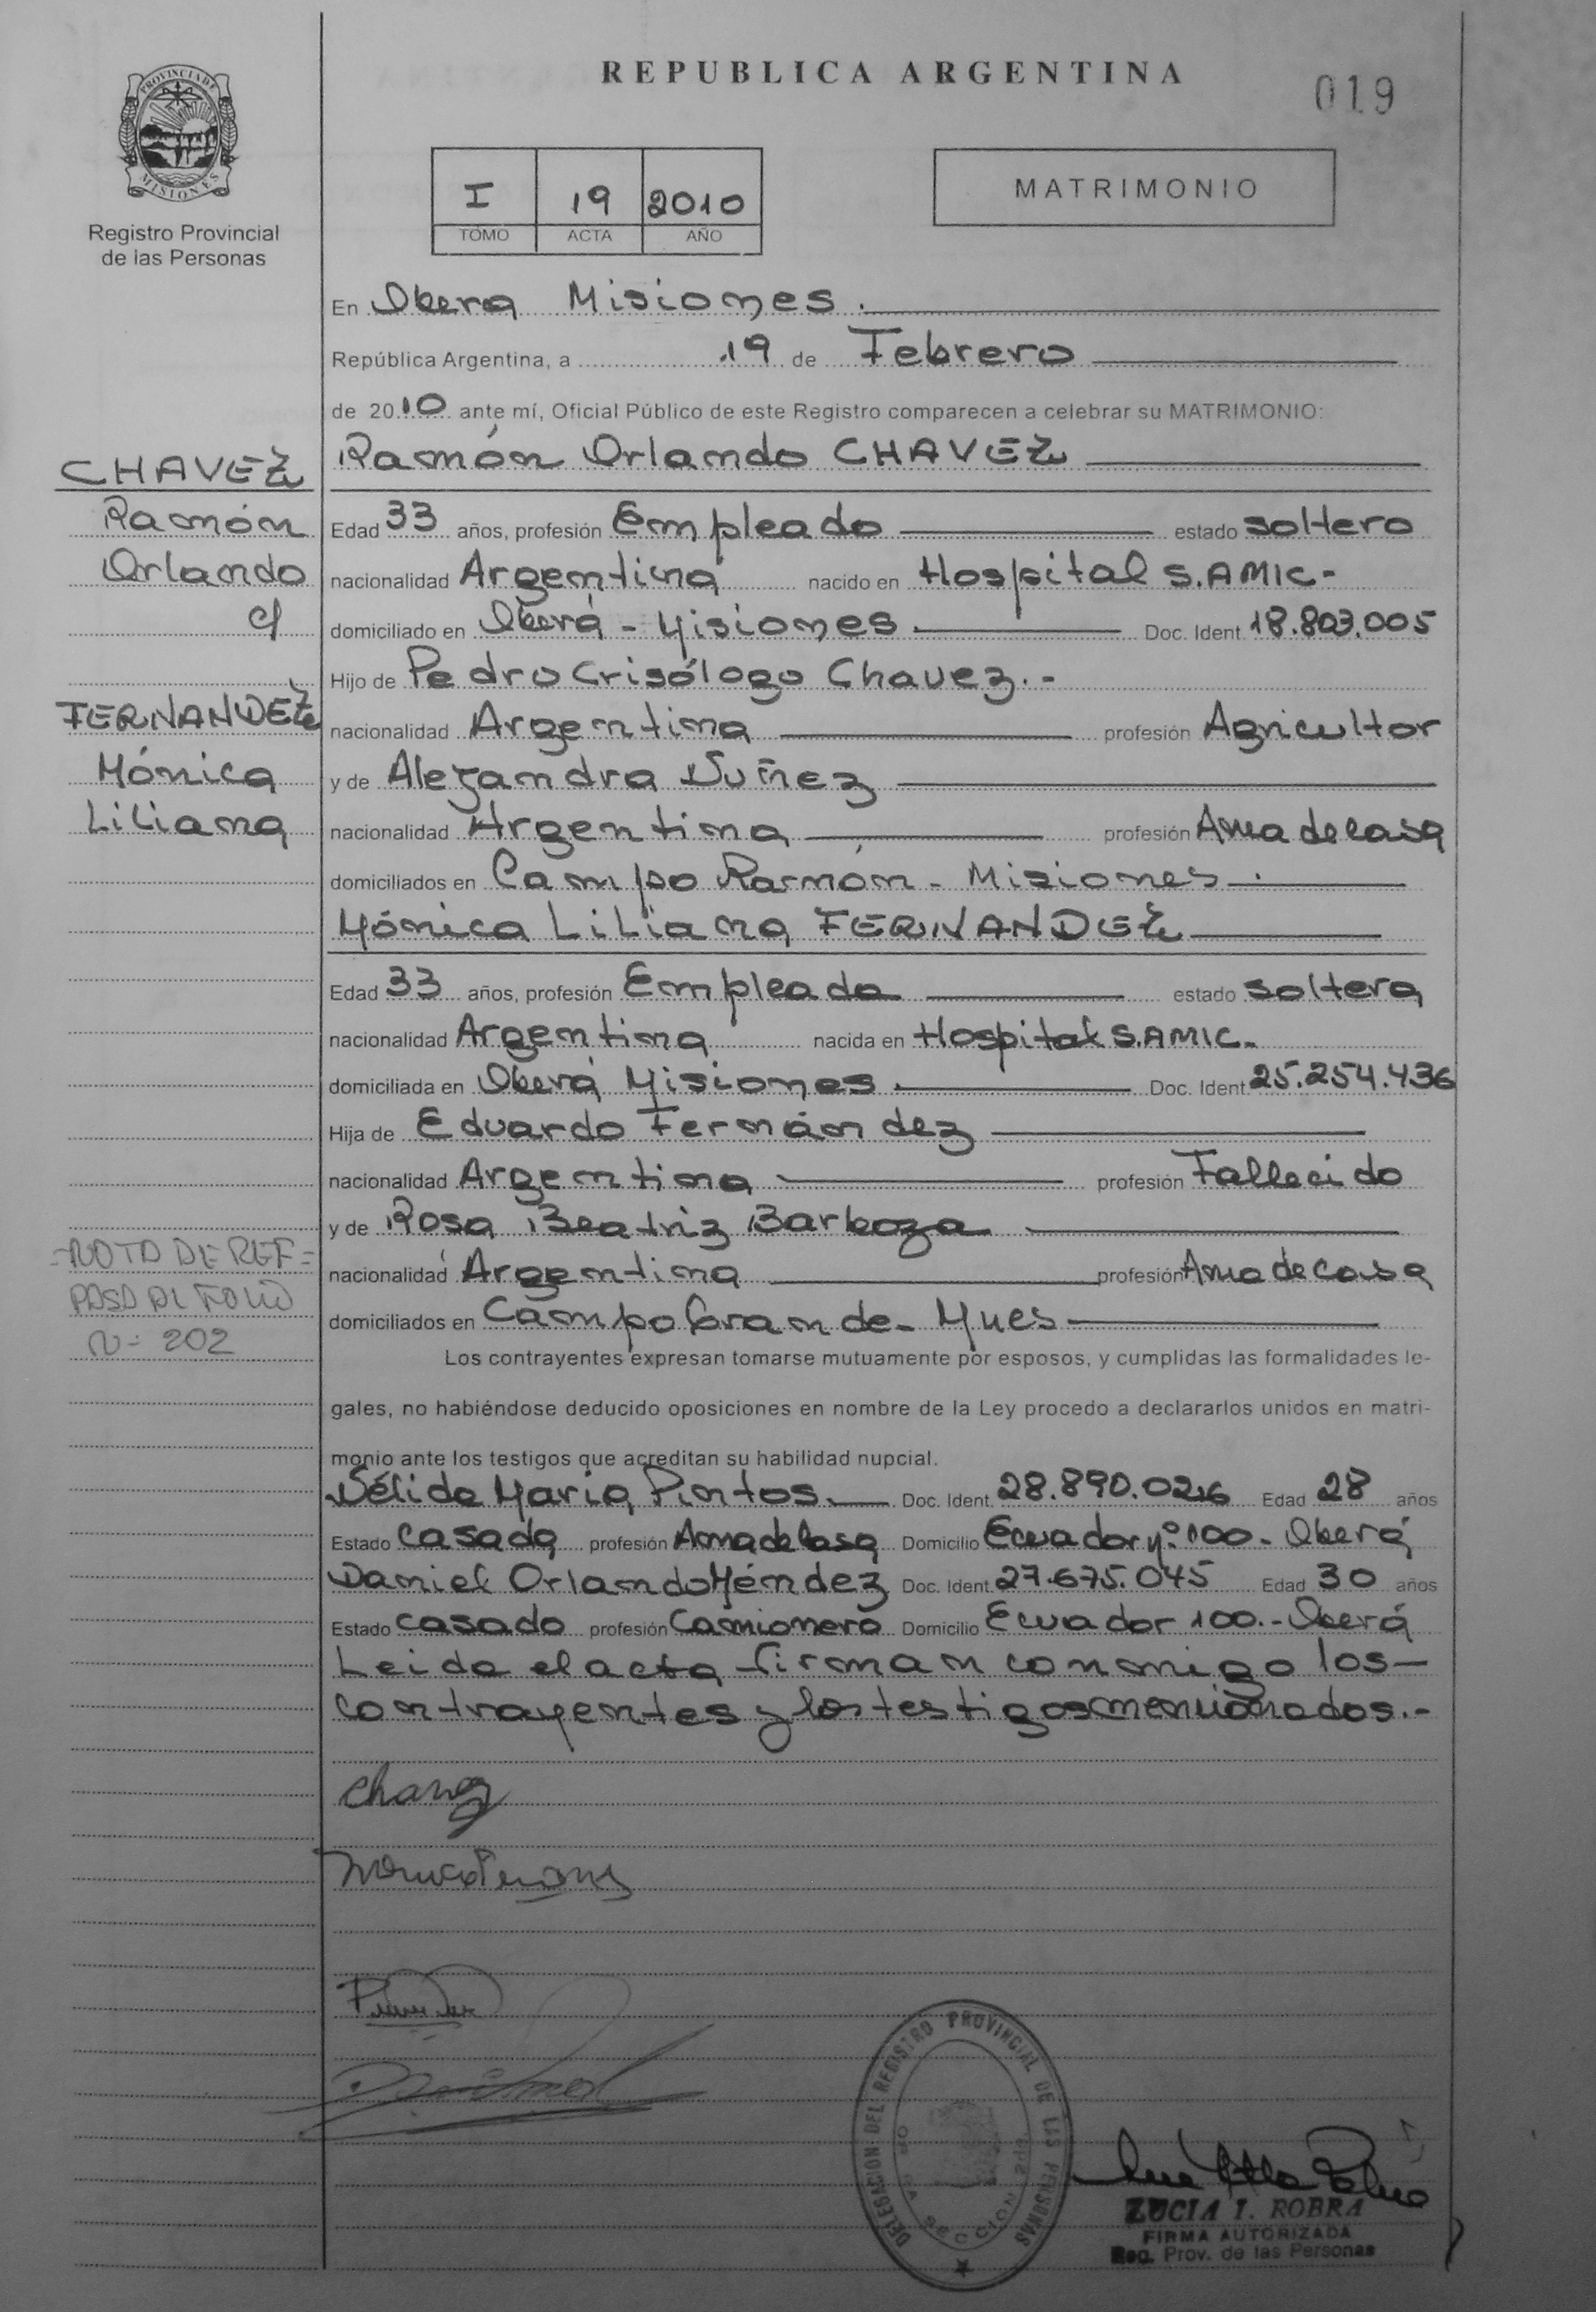 REPUBLICA ARGENTINA
019
PROVINCIA DE
MISIONES
Registro Provincial
de las Personas
I 19 2010
TOMO ACTA AÑO
MATRIMONIO
En Oberá Misiones.
República Argentina, a 19 de Febrero
de 2010 ante mí, Oficial Público de este Registro comparecen a celebrar su MATRIMONIO:
Ramón Orlando CHAVEZ
Edad 33 años, profesión Empleado estado soltero
nacionalidad Argentina nacido en Hospital S.AMIC-
domiciliado en Oberá - Misiones. Doc. Ident 18.803.005
Hijo de Pedro Crisólogo Chavez.-
nacionalidad Argentina profesión Agricultor
y de Alejandra Nuñez
nacionalidad Argentina profesión Ama de casa
domiciliados en Campo Ramón - Misiones.
Mónica Liliana FERNANDEZ
Edad 33 años, profesión Empleada estado soltera
nacionalidad Argentina nacida en Hospital S.AMIC.
domiciliada en Oberá Misiones. Doc. Ident 25.254.436
Hija de Eduardo Fernández
nacionalidad Argentina profesión Fallecido
y de Rosa Beatriz Barboza
nacionalidad Argentina profesión Ama de casa
domiciliados en Campo Grande - Mnes
Los contrayentes expresan tomarse mutuamente por esposos, y cumplidas las formalidades le-
gales, no habiéndose deducido oposiciones en nombre de la Ley procedo a declararlos unidos en matri-
monio ante los testigos que acreditan su habilidad nupcial.
Nélida María Pintos. Doc. Ident. 28.890.026 Edad 28 años
Estado Casada profesión Ama de Casa Domicilio Ecuador nº 100 - Oberá
Daniel Orlando Méndez Doc. Ident. 27.675.045 Edad 30 años
Estado casado profesión Camionero Domicilio Ecuador 100.- Oberá
Leida el acta firman conmigo los-
contrayentes y los testigos mencionados.-
CHAVEZ
Ramón
Orlando
c/
FERNANDEZ
Mónica
Liliana
=NOTA DE REF=
PASA AL FOLIO
N= 202
Chavez
DELEGACION DEL REGISTRO PROVINCIAL DE LAS PERSONAS
SECCION
LUCIA I. ROBRA
FIRMA AUTORIZADA
Reg. Prov. de las Personas